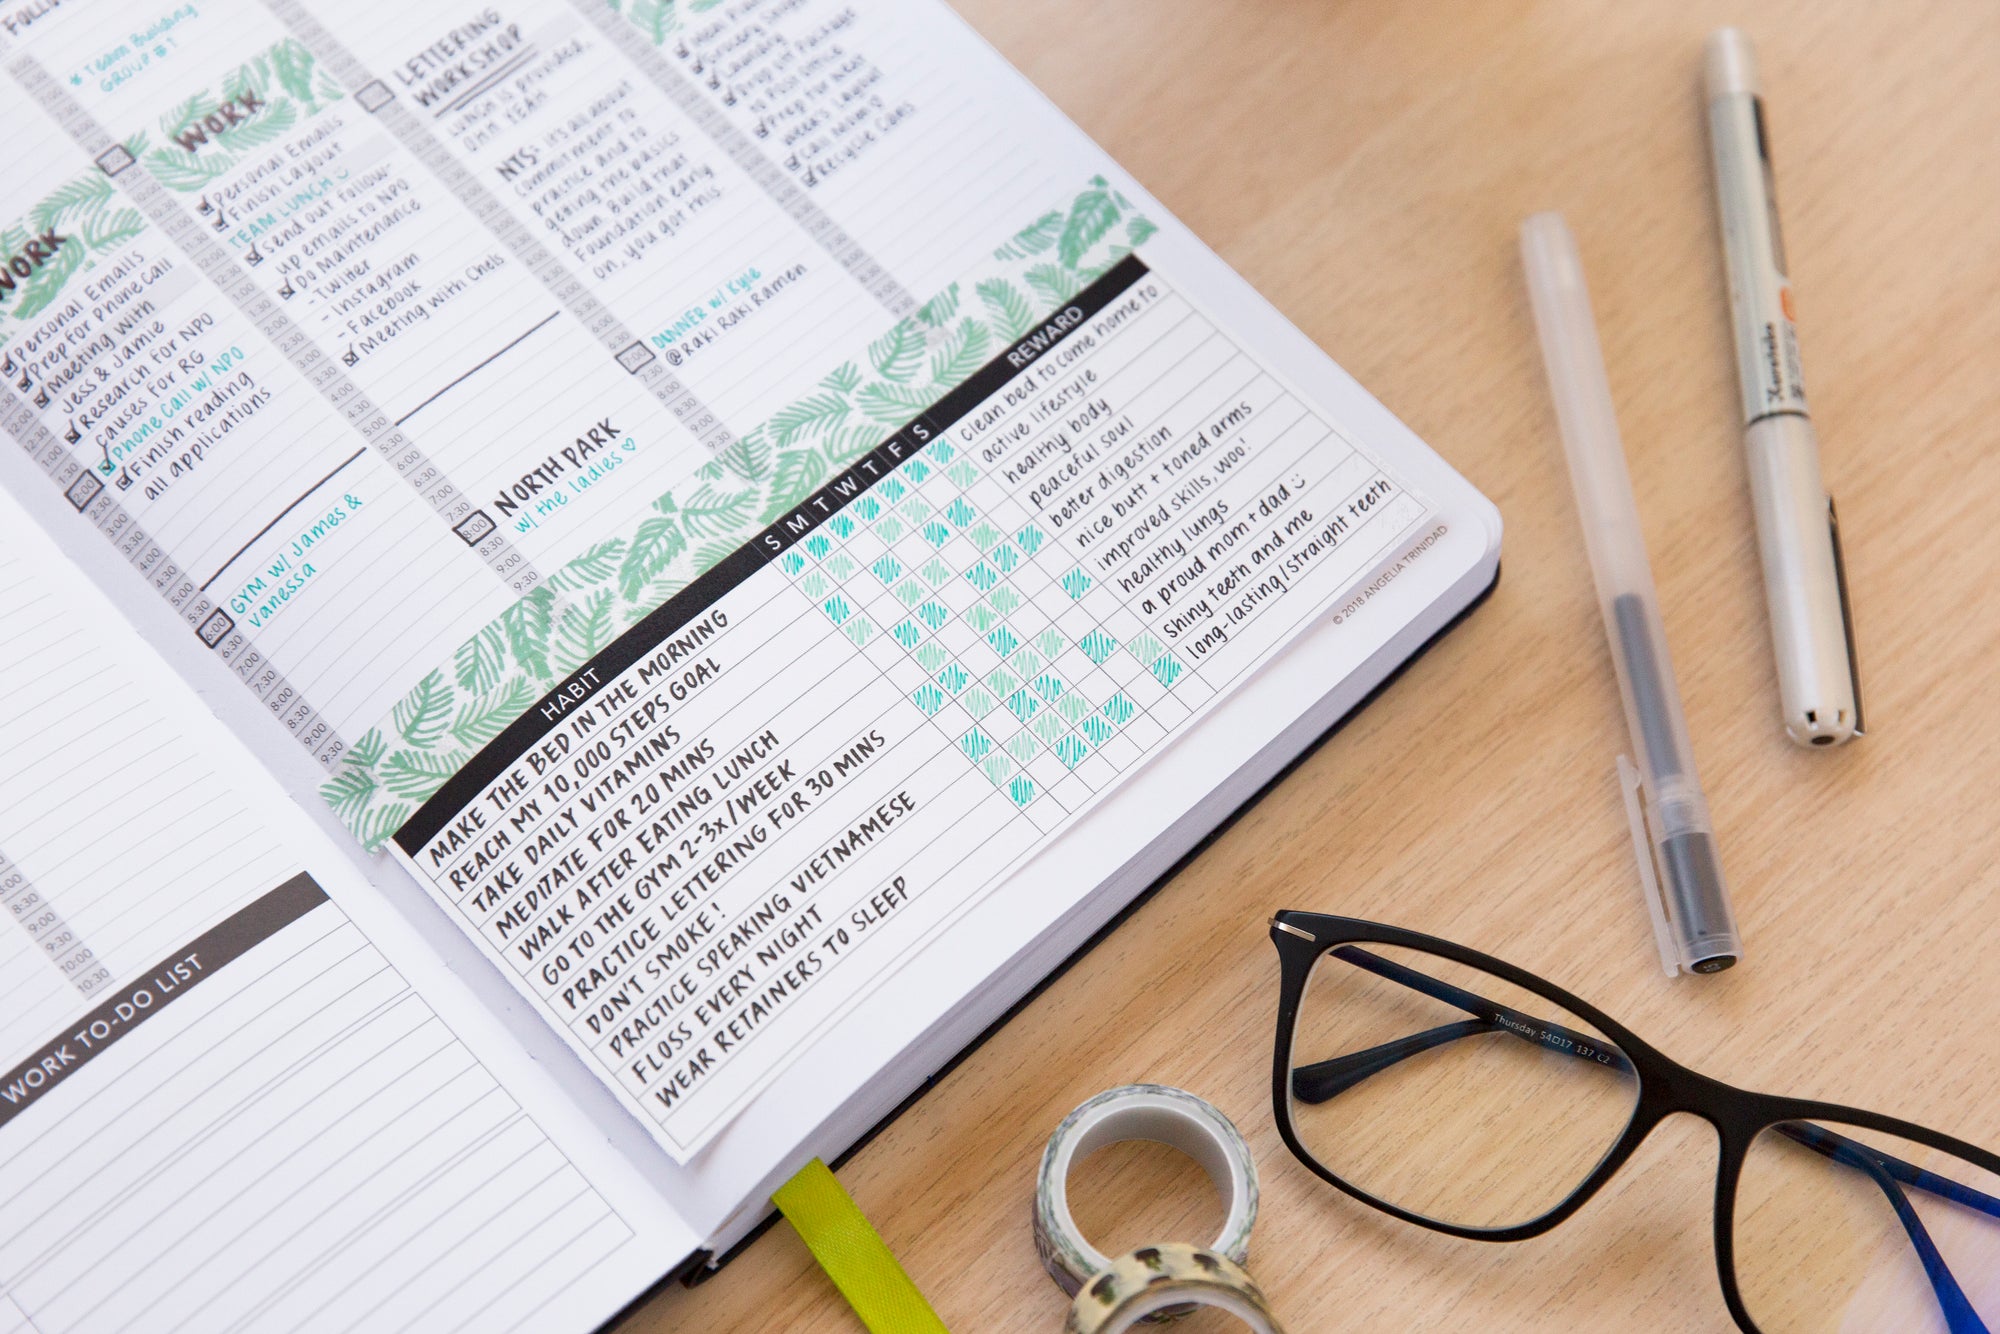 FOLLO
* Team Building
GROUP #1
WORK
Personal Emails
Prep for Phone Call
Meeting with
Jess & Jamie
Research for NPO
causes for RG
Phone Call w/ NPO
Finish reading
all applications
GYM w/ James &
Vanessa
WORK
Personal Emails
Finish Layout
TEAM LUNCH
Send out follow-
up emails to NPO
Do Maintenance
- Twitter
- Instagram
- Facebook
Meeting with Chels
NORTH PARK
w/ the ladies ♡
LETTERING
WORKSHOP
Lunch is provided,
OMM YEAH
NTS: it's all about
commitment to
practice and to
getting the basics
down. Build that
foundation early
on, you got this.
DINNER w/ Kyle
@Raki Raki Ramen
Laundry
Drop off packages
to post office
Prep for next
week's layout
Call Mommy
Recycle Cans
HABIT
S M T W T F S
REWARD
MAKE THE BED IN THE MORNING
clean bed to come home to
REACH MY 10,000 STEPS GOAL
active lifestyle
TAKE DAILY VITAMINS
healthy body
MEDITATE FOR 20 MINS
peaceful soul
WALK AFTER EATING LUNCH
better digestion
GO TO THE GYM 2-3x/WEEK
nice butt + toned arms
PRACTICE LETTERING FOR 30 MINS
improved skills, woo!
DON'T SMOKE!
healthy lungs
PRACTICE SPEAKING VIETNAMESE
a proud mom + dad
FLOSS EVERY NIGHT
shiny teeth and me
WEAR RETAINERS TO SLEEP
long-lasting/straight teeth
© 2018 ANGELIA TRINIDAD
WORK TO-DO LIST
Thursday 54□17 137 C2